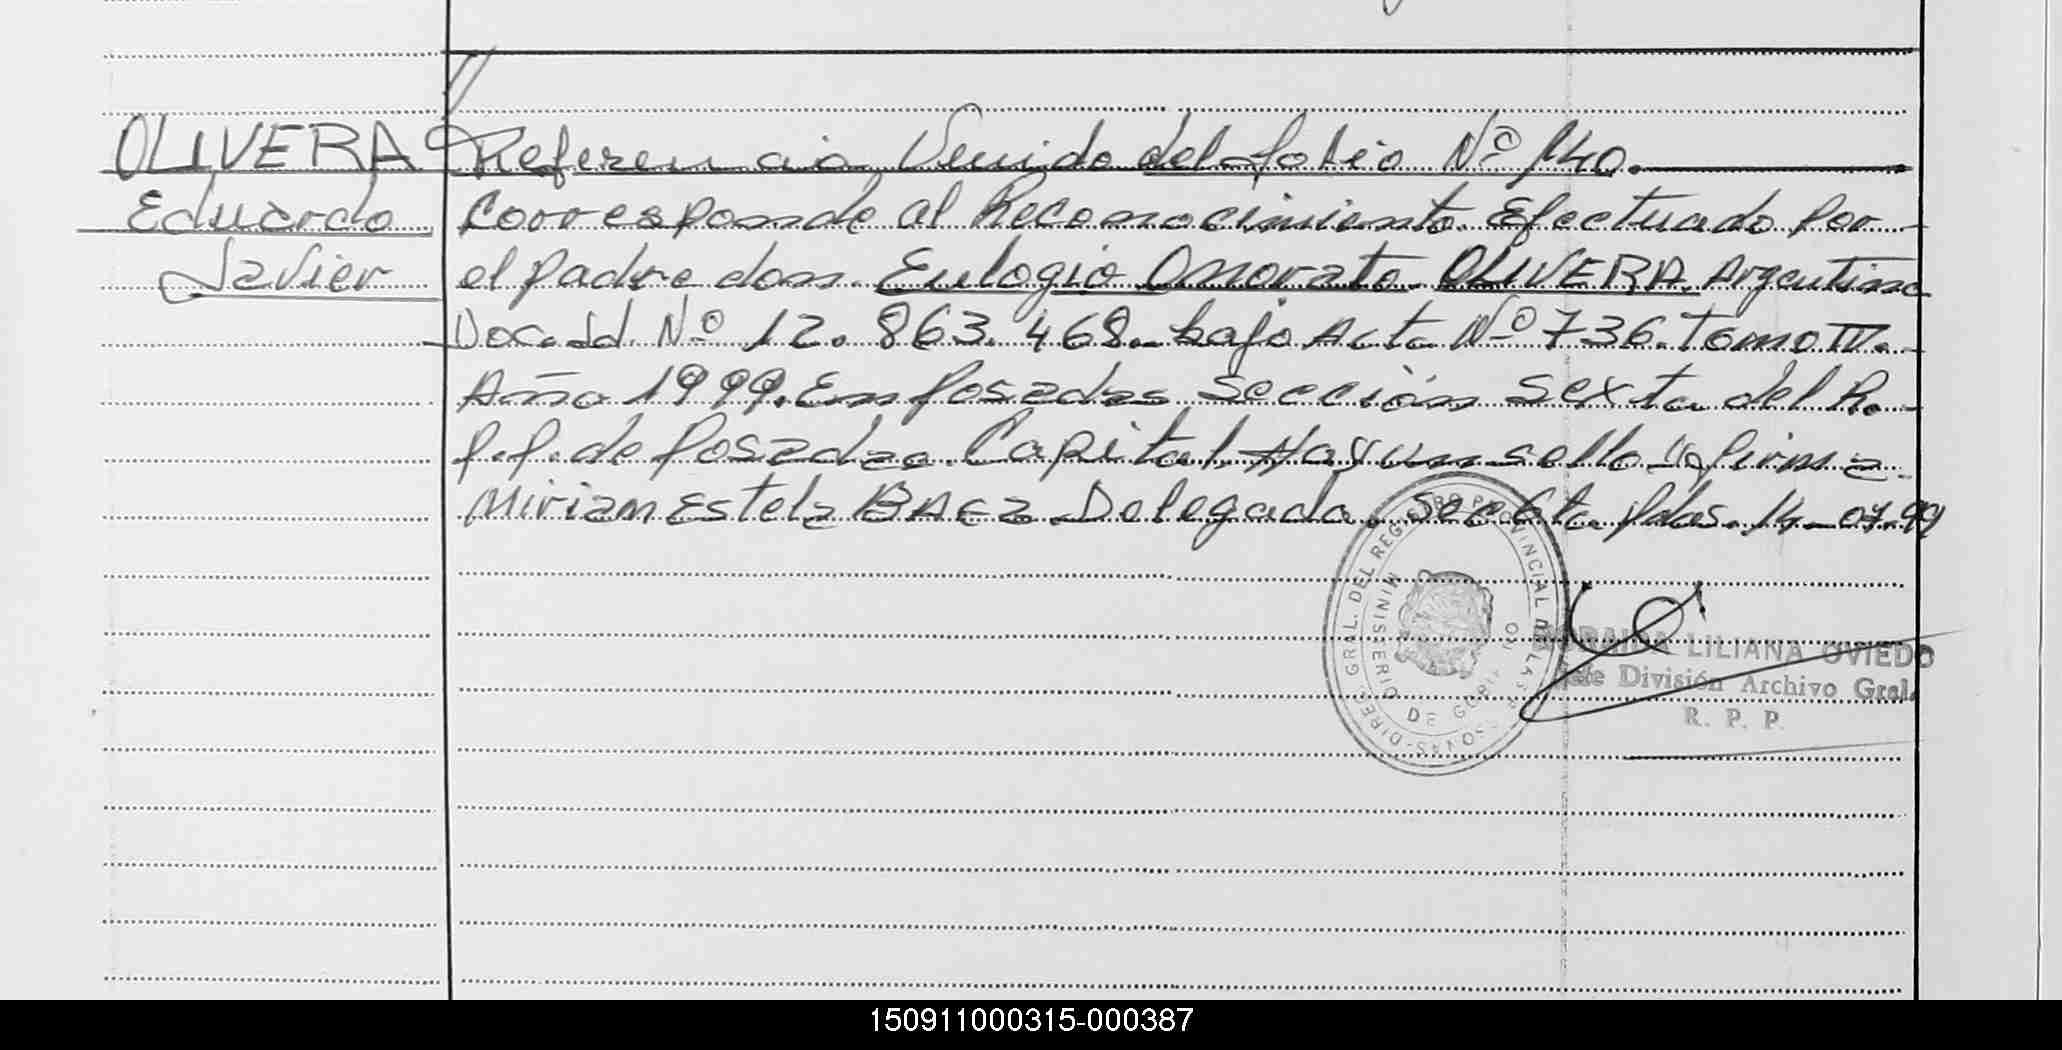 OLIVERA
Eduardo
Javier
Referencia Venido del folio Nº 140.
Corresponde al Reconocimiento Efectuado Por
el Padre don Eulogio Onorato OLIVERA, Argentino
Doc. Id. Nº 12.863.468.- bajo Acta Nº 736. Tomo IV.-
Año 1999. En Posadas Sección Sexta del R.-
P.P. de Posadas. Capital. Hay un sello y firma
Miriam Estela BAEZ Delegada. Sec 6ta. Pdas. 14-07-99
DIREC. GRAL. DEL REGISTRO PROVINCIAL DE LAS PERSONAS-
MINISTERIO DE GOBIERNO
LILIANA OVIEDO
Jefe División Archivo Gral.
R. P. P.
150911000315-000387